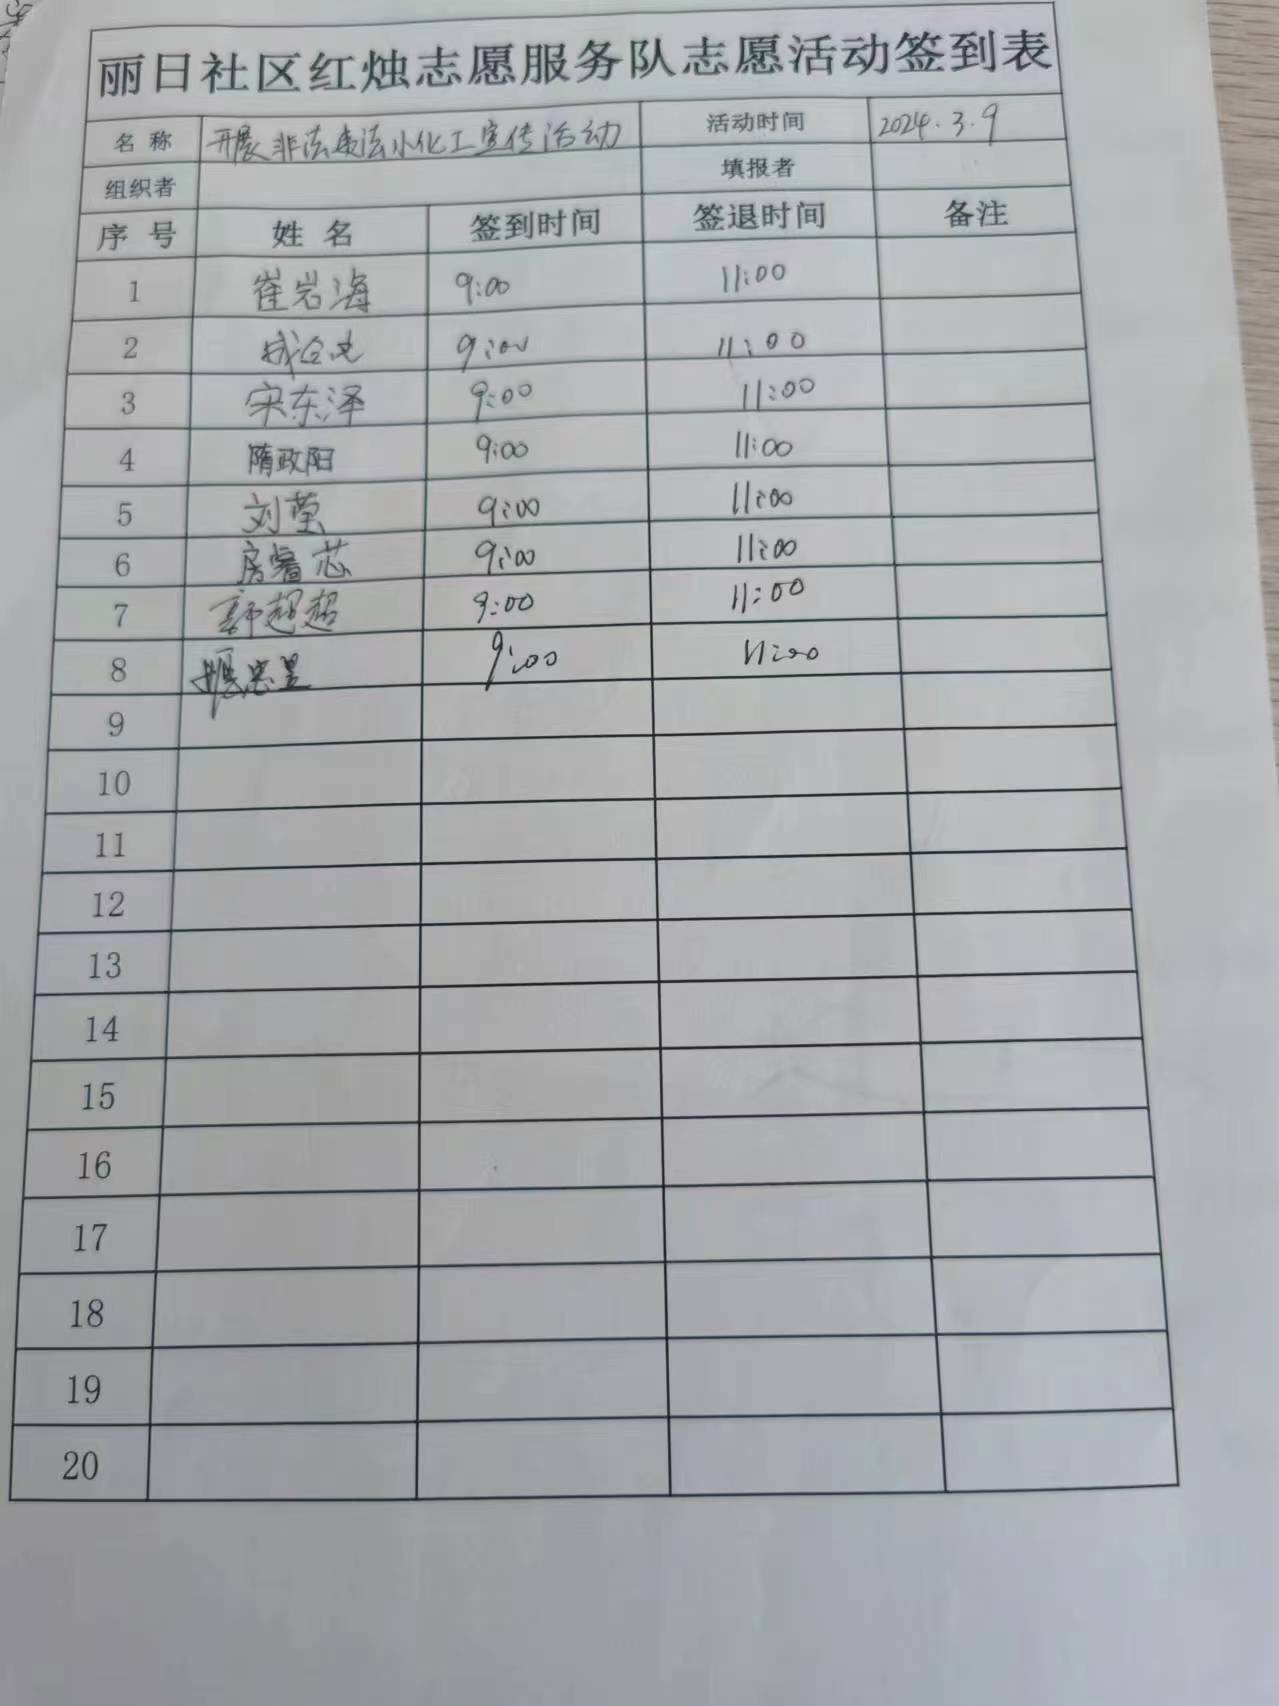 丽日社区红烛志愿服务队志愿活动签到表
名 称 开展非法违法小化工宣传活动 活动时间 2024.3.9
组织者 填报者
序 号 姓 名 签到时间 签退时间 备注
1 崔岩海 9:00 11:00
2 9:00 11:00
3 宋东泽 9:00 11:00
4 隋政阳 9:00 11:00
5 刘莹 9:00 11:00
6 房 芯 9:00 11:00
7 郭超超 9:00 11:00
8 9:00 11:00
9
10
11
12
13
14
15
16
17
18
19
20